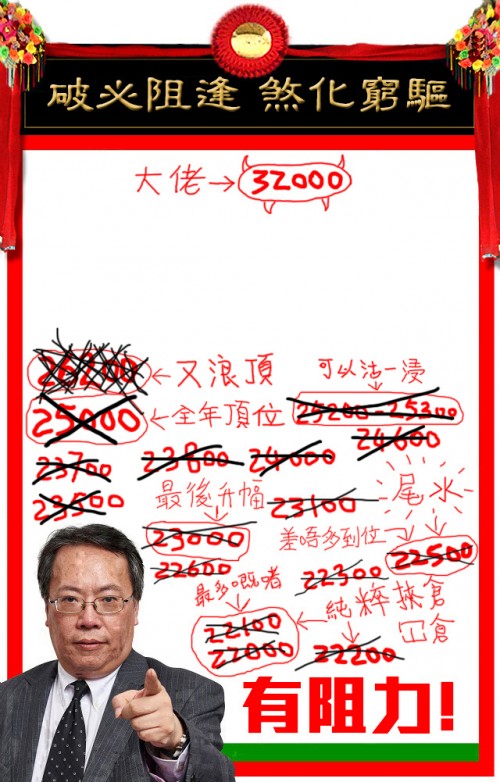 驅窮化煞 逢阻必破
大佬→32000
←又浪頂
可以沽一浸
25000 ←全年頂位
25200-25300
24600
23700 23800 24000
23500
最後升幅
23100
尾水
23000
差唔多到位→
22500
22600
22300
最多嘅啫
22100
22000
←純粹挾倉
冚倉
22200
有阻力!